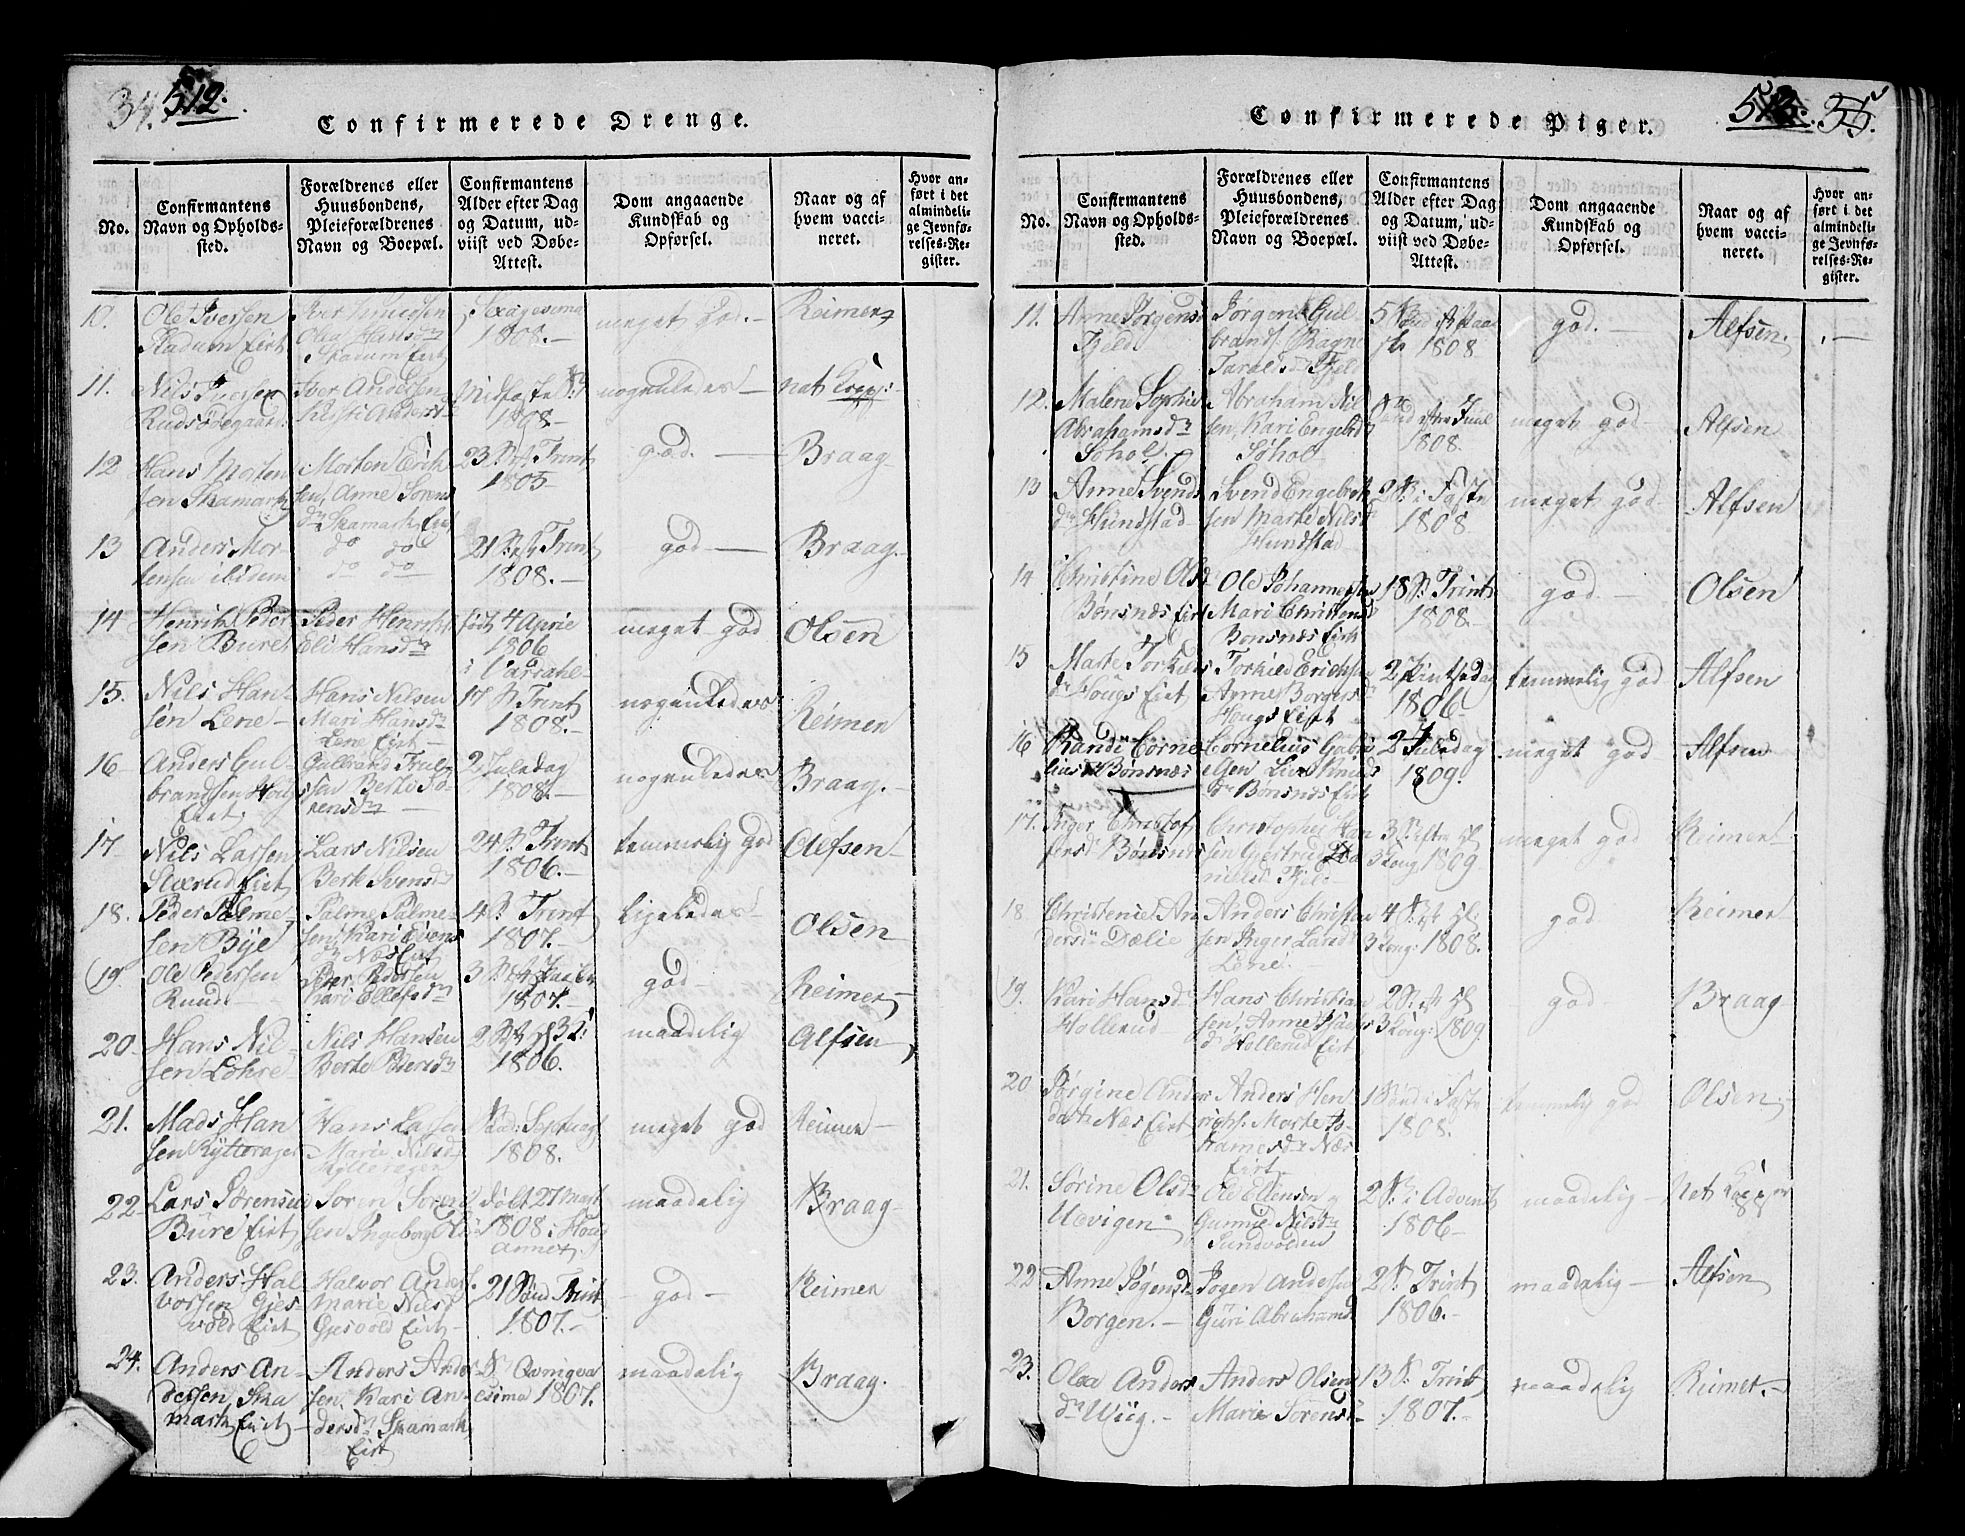 34. 512.
Confirmerede Drenge.
No.
Confirmantens
Navn og Opholds-
sted.
Forældrenes eller
Huusbondens,
Pleieforældrenes
Navn og Boepæl.
Confirmantens
Alder efter Dag
og Datum, ud-
viist ved Døbe-
Attest.
Dom angaaende
Kundskab og
Opførsel.
Naar og af
hvem vacci-
neret.
Hvor an-
ført i det
almindeli-
ge Jevnfø-
relses-Re-
gister.
10. Ole Iversen
Skadum Eiet
Iver Knudsen
Olea Hansdr
Skadum Eiet
Sexagesima
1808.—
meget God.—
Reimer
11. Nils Iversen
Rudsødegaard
Iver Andersen
Midfaste
1808—
nogenledes—
nat Kop:
12 Hans Morten
sen Skamark
Morten Erik
sen, Anne Sørens
dr Skamark Eiet
23 S. Trint
1805
god.—
Braag
13 Anders Mor
tensen ibidem
do do
do do
21 S. Trint
1808.—
god—
Braag.
14 Henrik Peter
sen Bure
Peder Henrik
Eli Hansdr
født 4 April
1806
meget god
Olsen
15. Nils Han
sen Lene—
Hans Nilsen
Mari Hansdr
Lene Eiet—
17 S. Trint
1808.—
nogenledes
Reimer
16 Anders Gul-
brandsen Houg
Eiet.
Gulbrand Truls
sen Berte Sø-
rensdr
2 Juledag
1808.—
nogenledes
Braag.—
17 Nils Larsen
Eiet
Lars Nilsen
Berte Svensdr
24 S. Trint
1806.—
temmelig god
Olefsen
18. Peder Palme-
sen Bye
Palme Palme-
sen, Kari Evens
dr Næs Eiet
4 S. Trint
1807.—
ligeledes
Olsen
19. Ole Pedersen
Ruud
Peder Pedersen
Kari Ellefsdr
3 S.
1807.—
god—
Reimer
20 Hans Nil-
sen Lohre
Nils Hansen
Berte Pedersdr
2 S.
1806.
maadelig
Alfsen
21. Mads Han
sen Rytterager
Hans Larsen
Marie Nilsdr
Rytteragen
Septuag
1808.
meget god
Reimer—
22 Lars Sørensen
Bure Eiet
Søren Søren
sen Ingeborg
Døbt 27 Mart
1808 i Houg
Annex
maadelig
Braag
23. Anders Hal
vorsen Gjes
vold Eiet
Halvor Anders
Marie Nilsd
Gjesvold Eiet—
21 Sønd Trint
1807.—
—god—
Reimer
24. Anders An-
dersen Ska
mark Eiet—
Anders Ander
sen. Kari An-
dersdr Skamark
Eiet
S. Qvinqva
gesima 1807.
maadelig
Braag.
513. 35.
Confirmerede Piger.
No.
Confirmantens
Navn og Opholds-
sted.
Forældrenes eller
Huusbondens,
Pleieforældrenes
Navn og Boepæl.
Confirmantens
Alder efter Dag
og Datum, ud-
viist ved Døbe-
Attest.
Dom angaaende
Kundskab og
Opførsel.
Naar og af
hvem vacci-
neret.
Hvor an-
ført i det
almindeli-
ge Jevnfø-
relses-Re-
gister.
11. Anne Jørgens
Fjeld
Jørgen Gul
brands. Ragne
Taraldsdr Fjeld
5 Sønd eft Paa
ske 1808
god.—
Alfsen.
12. Malene Sophie
Abrahamsdr
Sohol
Abraham Nil
sen, Kari Engebrd
Sohol
Sønd eftr Juul
1808.
meget god
Alfsen
13 Anne Svends
dr Hundstad
Svend Engebret
sen Marte Nilsd
Hundstad
2 S. i Faste
1808
meget god
Alfsen
14 Christine Olsd
Bønsnæs Eiet
Ole Johannesen
Mari Christensd
Bonsnæs Eiet
18 S. Trint
1808.
god.—
Olsen
15 Marte Torkilds
dr Hougs Eiet
Torkild Erichsen
Anne Borgersdr
Hougs Eiet
2 Pintsedag
1806
temmelig god
Alfsen
16 Randi Corne
lius Bønsnæs
Cornelius Gabri
elsen Lise Knuds
dr Bønsnæs Eiet
2 Juledag
1809.
meget god
Alfsen
17. Inger Christof
fersd Bønsnæs
Christopher Han
sen Gjertrud Da
nielsd Fjeld
3 S. eftr Hl
3 Kong 1809
meget god
Reimer
18 Christense An
dersdr Dælie
Anders Christen
sen Inger Larsd
Lene
4 S. eft Hl:
3 Kong: 1808.
god
Reimer
19. Kari Hansd
Hollerud
Hans Christian
sen, Anne Isaks
dr Hollerud Eiet
2 S. eft Hl
3 Kong: 1809.
god
Braag
20 Jørgine Anders
datr Næs Eiet
Anders Hen
richs. Marte
dr Næs
Eiet
1 Sønd i Faste
1808.
temmelig god
Olsen
21. Sørine Olsdr
Udvigen
Ole Ellensen og
Gunnild Nilsdr
Sundvolden
2 S. i Advent
1806—
maadelig—
Nat Kopper
22 Anne Jøgensd
Borgen.—
Jogen Andersen
Guri Abrahamsd
2 S. Trint
1806.—
maadelig—
Alfsen
23. Olea Anders
dr Wiig.—
Anders Olsen
Marie Sorensd
13 S. Trint
1807.—
maadelig
Reimer.—